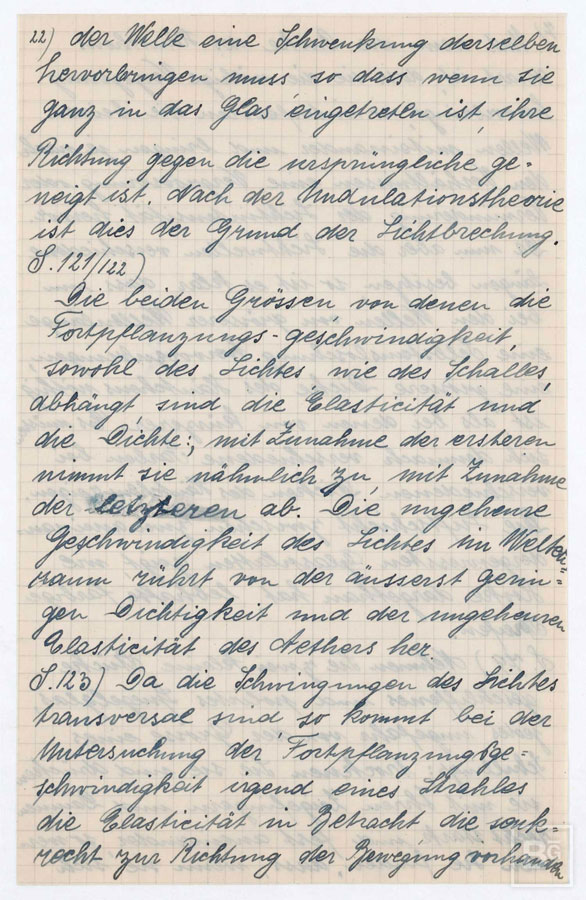 22) der Welle eine Schwenkung derselben
hervorbringen muss so dass wenn sie
ganz in das Glas eingetreten ist, ihre
Richtung gegen die ursprüngliche ge-
neigt ist. Nach der Undulationstheorie
ist dies der Grund der Lichtbrechung.
S. 121/122)
Die beiden Grössen, von denen die
Fortpflanzungs-geschwindigkeit,
sowohl des Lichtes, wie des Schalles,
abhängt, sind die Elasticität und
die Dichte:, mit Zunahme der ersteren
nimmt sie nähmlich zu, mit Zunahme
der letzteren ab. Die ungeheure
Geschwindigkeit des Lichtes im Welten-
raum rührt von der äusserst gerin-
gen Dichtigkeit und der ungeheuren
Elasticität des Aethers her.
S. 123) Da die Schwingungen des Lichtes
transversal sind so kommt bei der
Untersuchung der Fortpflanzungsge-
schwindigkeit irgend eines Strahles
die Elasticität in Betracht die senk-
recht zur Richtung der Bewegung vorhanden
BG